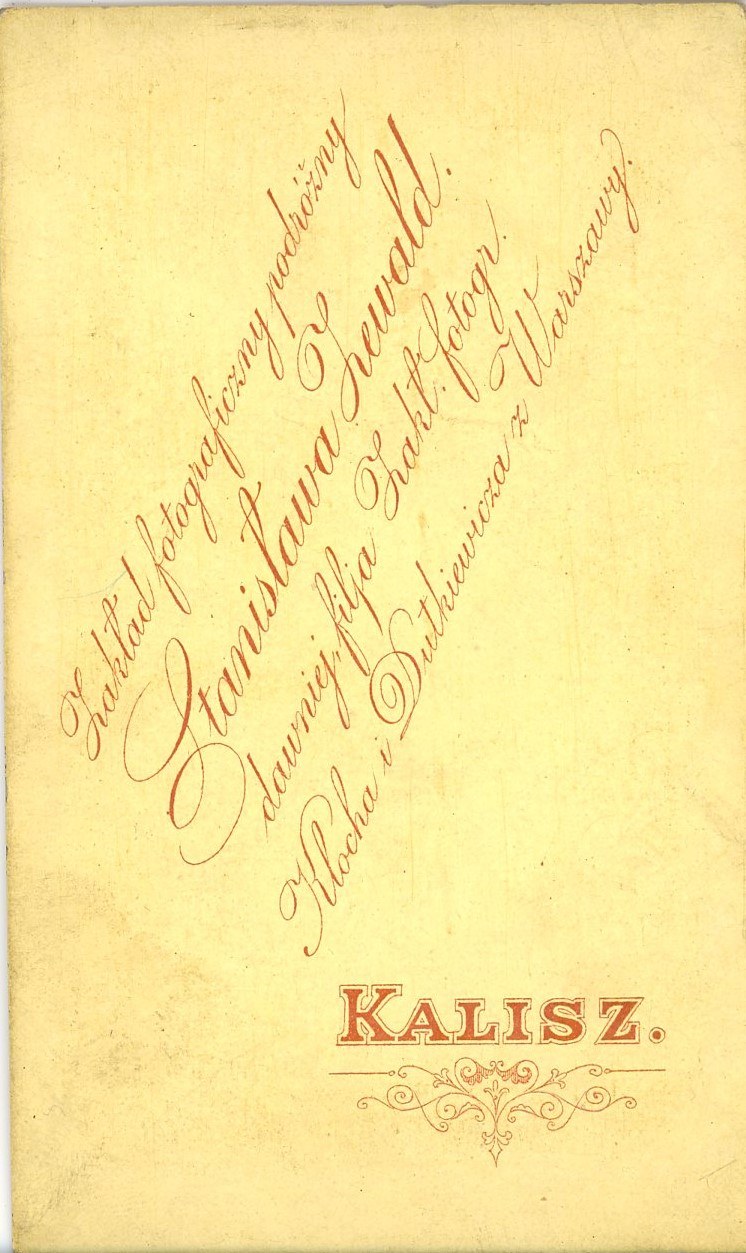 Zakład fotograficzny podróżny
Stanisława Zewald.
dawniej filja Zakł. fotogr.
Klocha i Dutkiewicza z Warszawy.
KALISZ.